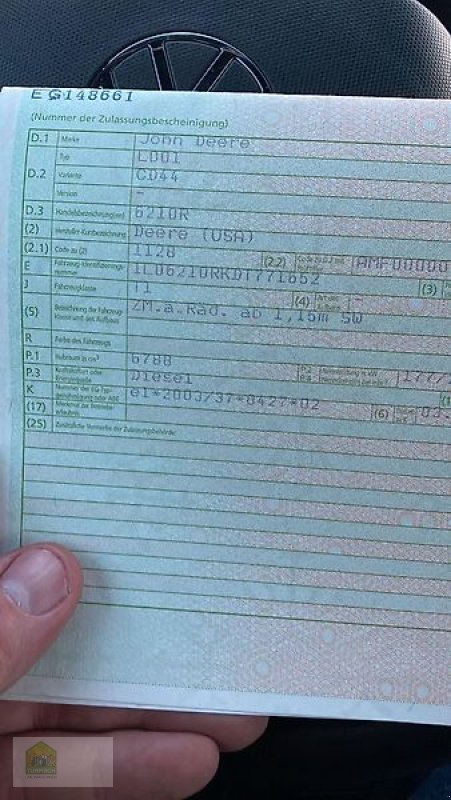 EG148661
(Nummer der Zulassungsbescheinigung)
D.1 Marke John Deere
D.2 Typ L001
Variante CD44
Version -
D.3 Handelsbezeichnung(en) 6210R
(2) Hersteller-Kurzbezeichnung Deere (USA)
(2.1) Code zu (2) 1128 (2.2) AMF00000
E Fahrzeug-Identifizierungs-nummer 1L06210RKDT771652 (3)
J Fahrzeugklasse T1 (4) -
(5) Bezeichnung der Fahrzeug-Klasse und des Aufbaus ZM.a.Räd. ab 1,15m SW
R Farbe des Fahrzeugs
P.1 Hubraum in cm³ 6788 177/
P.3 Kraftstoffart oder Energiequelle Diesel
K Nummer der EG-Typ-genehmigung oder ABE e1*2003/37*0427*02 (6) 03.
(17) Merkmal zur Betriebs-erlaubnis
(25) Zusätzliche Vermerke der Zulassungsbehörde